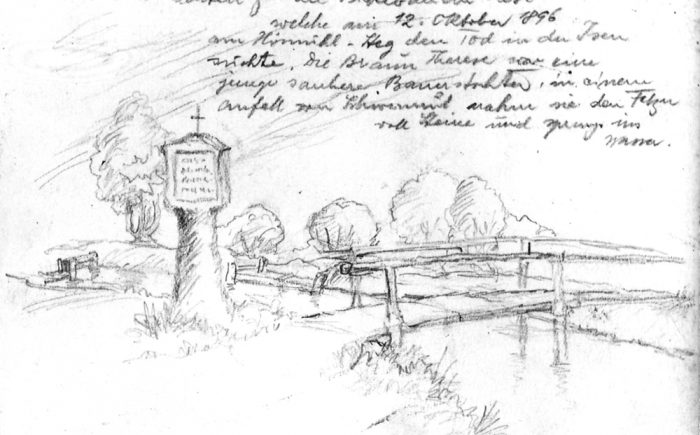 die
welche am 12. Oktober 1896
am Steg den Tod in der Isen
suchte. Die Braun Therese war eine
junge saubere Bauerstochter, in einem
anfall von Schwermut nahm sie den
voll Steine und sprang ins
wasser.